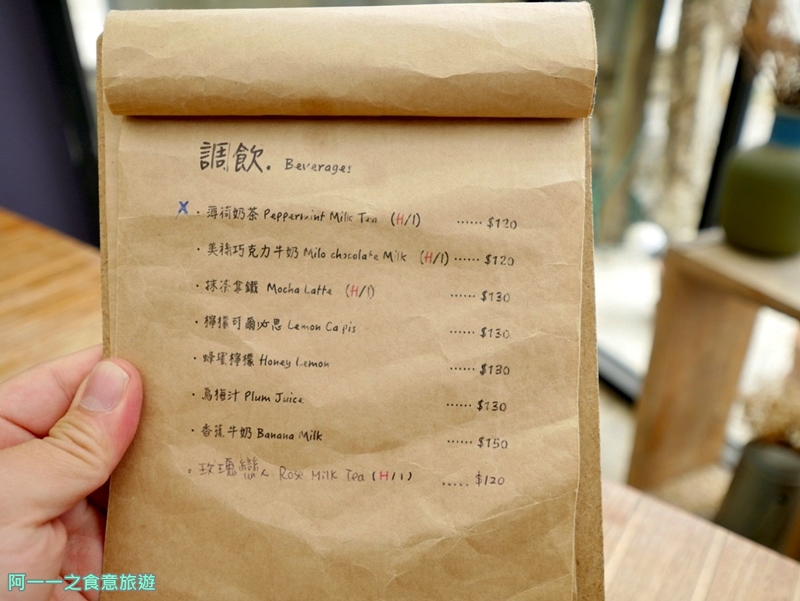 調飲. Beverages
x · 薄荷奶茶 Peppermint Milk Tea (H/I) ...... $120
· 美祿巧克力牛奶 Milo chocolate Milk (H/I) ...... $120
· 抹茶拿鐵 Mocha Latte (H/I) ...... $130
· 檸檬可爾必思 Lemon Calpis ...... $130
· 蜂蜜檸檬 Honey Lemon ...... $130
· 烏梅汁 Plum Juice ...... $130
· 香蕉牛奶 Banana Milk ...... $150
· 玫瑰戀人 Rose Milk Tea (H/I) ..... $120
阿一一之食意旅遊